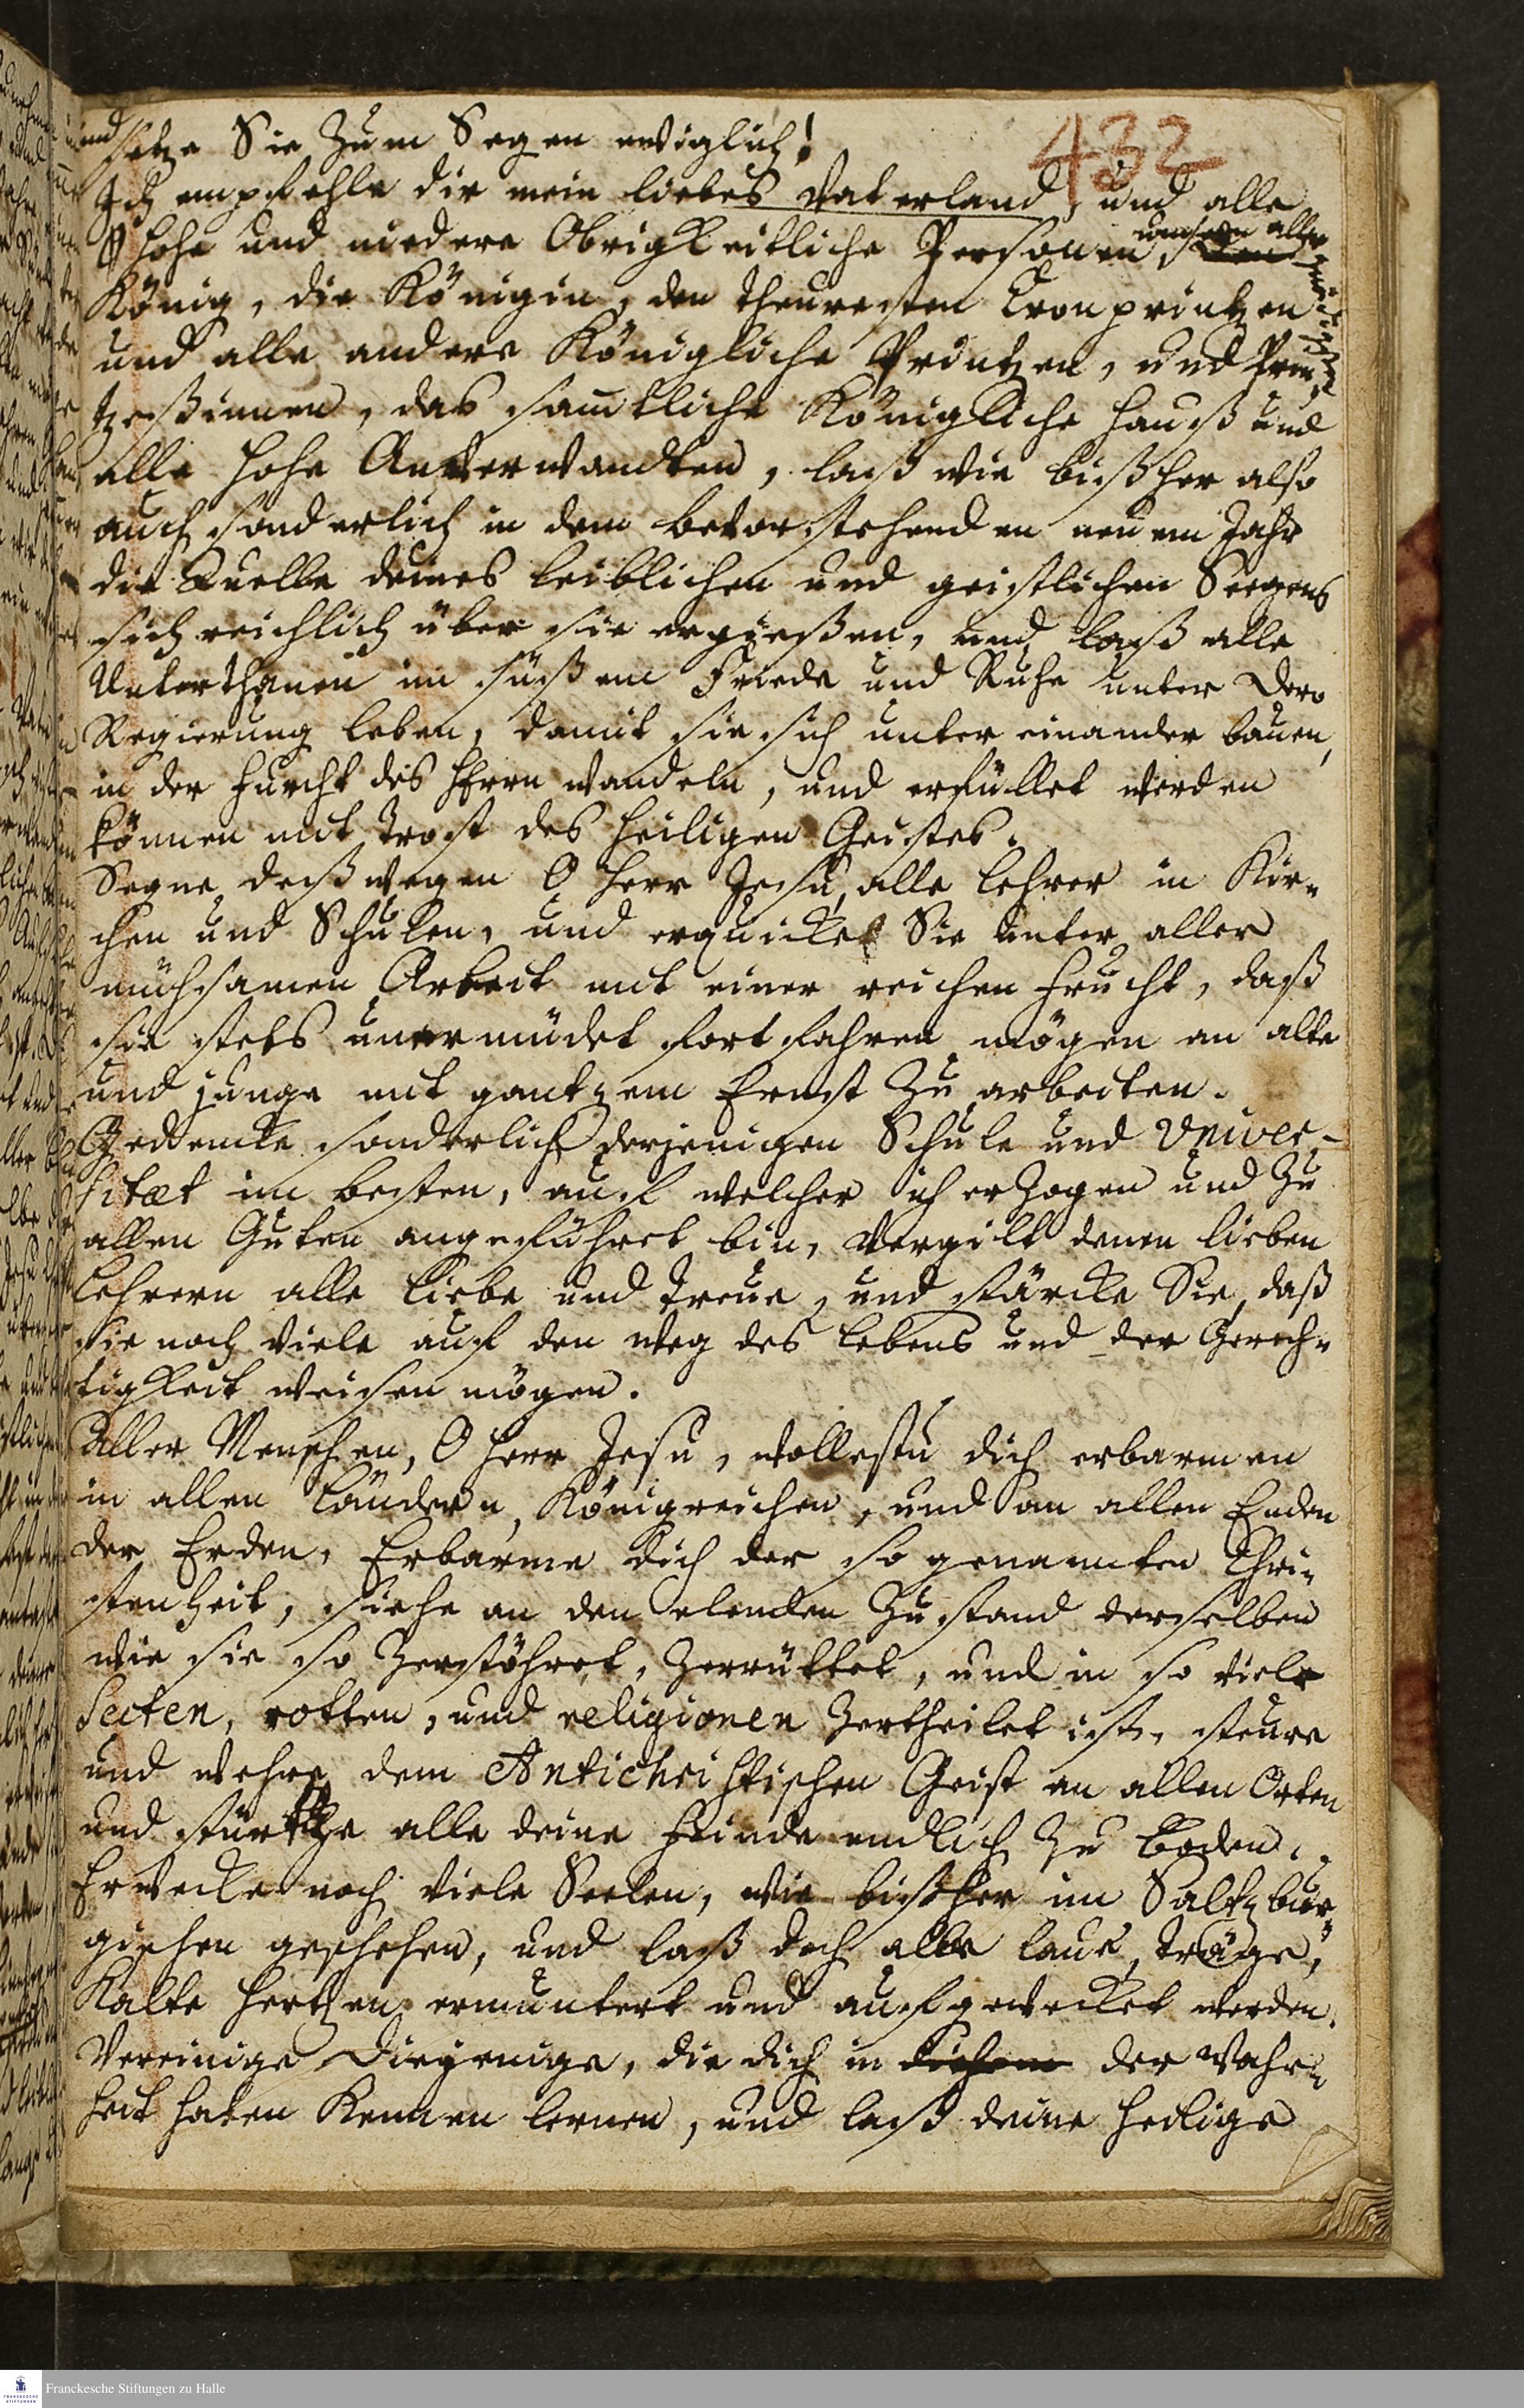 432
und setze Sie zum Segen ewiglich!
Ich empfehle dir mein liebes Vaterland, und alle
hohe und niedere Obrigkeitliche Personen, unsern aller
König, die Königin, den theuresten Cronprintzen
und alle andere Königliche Printzen, und Prin-
tzeßinnen, das sämtliche Königliche Hauß und
alle hohe Anverwandten, laß wie bißher also
auch sonderlich in dem bevorstehenden neuen Jahr
die Quelle deines leiblichen und geistlichen Seegens
sich reichlich über sie ergießen, und laß alle
Unterthanen im süßem Friede und Ruhe unter Dero
Regierung leben, damit sie sich unter einander bauen,
in der Furcht des HErrn wandeln, und erfüllet werden
können mit Trost des heiligen Geistes.
Segne deßwegen O Herr Jesu, alle Lehrer in Kir-
chen und Schulen, und erquicke Sie unter aller
mühsamen Arbeit mit einer reichen Frucht, daß
sie stets unermüdet fortfahren mögen an alte
und junge mit gantzem Ernst zu arbeiten.
Gedencke sonderlich derjenigen Schule und Univer-
sitæt im besten, auf welcher ich erzogen und zu
allen Guten angeführet bin, vergilt denen lieben
Lehrern alle Liebe und Treue, und stärcke Sie, daß
sie noch viele auf den Weg des Lebens und der Gerech-
tigkeit weisen mögen.
Aller Menschen, O Herr Jesu, wollestu dich erbarmen
in allen Ländern, Königreichen, und an allen Enden
der Erden, Erbarme dich der so genannten Chri-
stenheit, siehe an den elenden Zustand derselben
wie sie so zerstöhret, zerrüttet, und in so viele
Secten, rotten, und religionen zertheilet ist, steure
und wehre dem Antichristischen Geist an allen Orten
und stürtze alle deine Feinde endlich zu Boden.
Erwecke noch viele Seelen, wie bißher im Saltzbur-
gischen geschehen, und laß doch alle laue, träge,
Kalte Hertzen ermuntert und aufgewecket werden.
Vereinige Diejenige, die dich in der Wahr-
heit haben Kennen lernen, und laß deine heilige
Franckesche Stiftungen zu Halle